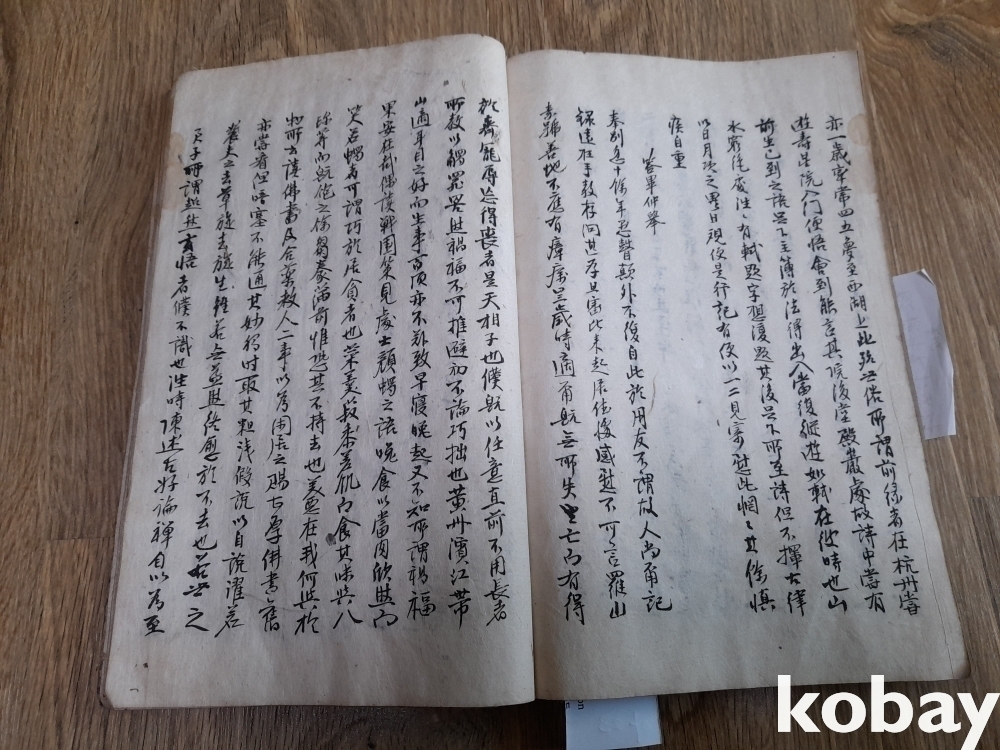 亦一歲率常四五夢至西湖上此殆世俗所謂前緣者在杭州嘗
遊壽星院入门便悟會到能言其院後堂殿巖處故詩中嘗有
前生已到之語足下主簿於法得出入當復縱遊如軾在彼時也山
水窮絶處往〻有軾題字想復題其後足下所至詩但不擇古律
以日月次之異日視便是行記有便以一二見寄慰此惘〻其餘慎
疾自重
答畢仲擧
奉別忽十餘年愚瞽顛仆不復自比於朋友不謂故人尚爾記
錄遠枉手敎存问甚厚且審比來起居佳勝感慰不可言羅山
素號善地不應有瘴癘豈歲時適爾旣無所失亡而有得
於齊寵辱忘得喪者是天相子也僕旣以任意直前不用長者
所敎以觸罪罟然禍福不可推避初不論巧拙也黃州濱江帶
山適耳目之好而生事百須亦不難致早寢晚起又不知所謂禍福
果安在哉偶讀戰國策見處士顔蠋之語晚食以當肉欣然而
笑若蠋者可謂巧於居貧者也菜羹菽黍差飢而食其味與八
珍等而旣飽之餘芻豢滿前惟恐其不持去也美惡在我何與於
物所云讀佛書及合藥救人二事以爲閑居之賜甚厚佛書舊
亦嘗看但暗塞不能通其妙獨時取其粗淺假說以自洗濯若
農夫之去草旋去旋生雖若無益然終愈於不去也若世之
君子所謂超然玄悟者僕不識也往時陳述古好論禪自以爲至
kobay